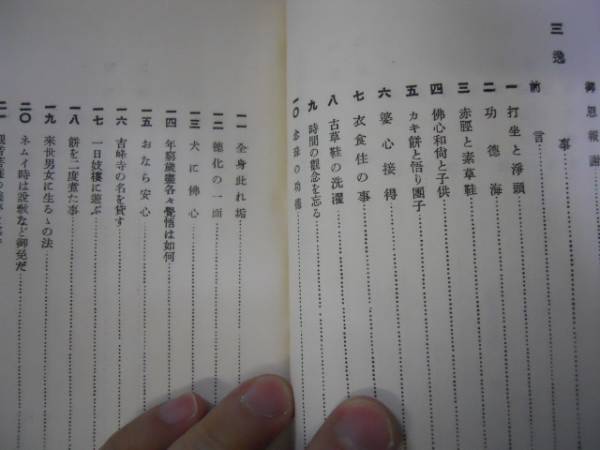 御恩報謝
三 逸事
前言
一 打坐と淨頭
二 功德海
三 赤脛と素草鞋
四 佛心和尙と子供
五 カキ餠と悟り團子
六 婆心接得
七 衣食住の事
八 古草鞋の洗濯
九 時間の觀念を忘る
一〇
一一 全身此れ垢
一二 德化の一面
一三 犬に佛心
一四 年窮歲盡各々覺悟は如何
一五 おなら安心
一六 吉峰寺の名を貸す
一七 一日妓樓に遊ぶ
一八 餠を二度煮た事
一九 來世男女に生るゝの法
二〇 ネムイ時は說敎など御免だ
二一